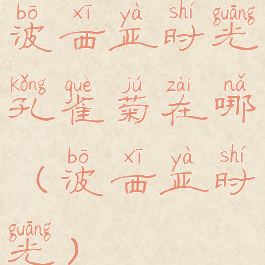 bō xī yà shí guāng
波西亚时光
kǒng què jú zài nǎ
孔雀菊在哪
bō xī yà shí
（波西亚时
guāng
光）